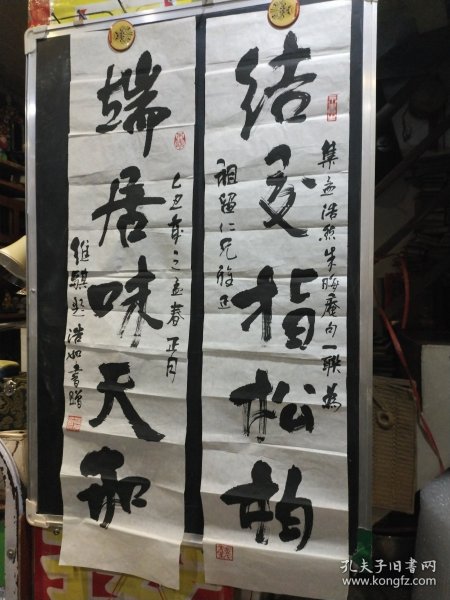 结交指松柏
集孟浩然朱晦庵句一联为
祖留仁兄
端居味天和
乙丑年之孟春正月
维骐
浩如书赠
孔夫子旧书网
www.kongfz.com